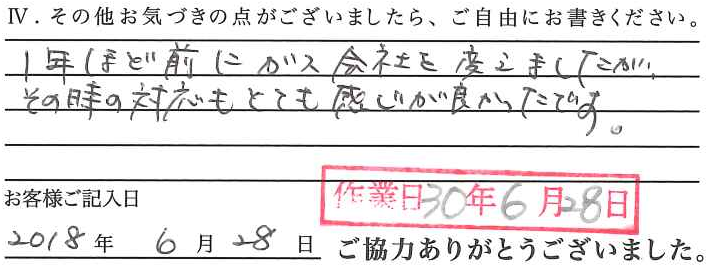 Ⅳ．その他お気づきの点がございましたら、ご自由にお書きください。
1年ほど前にガス会社を変えましたが、
その時の対応もとても感じが良かったです。
お客様ご記入日
作業日30年6月28日
2018年 6月28日 ご協力ありがとうございました。